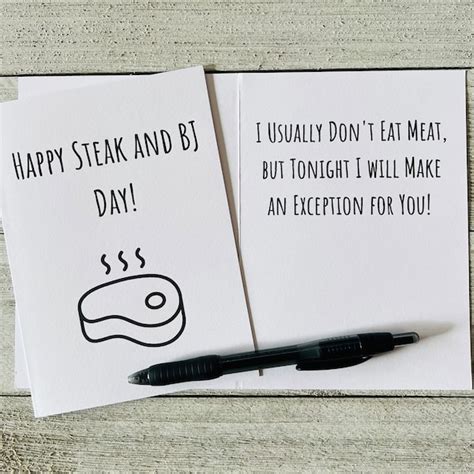 Happy Steak and BJ
Day!
I Usually Don't Eat Meat,
but Tonight I will Make
an Exception for You!